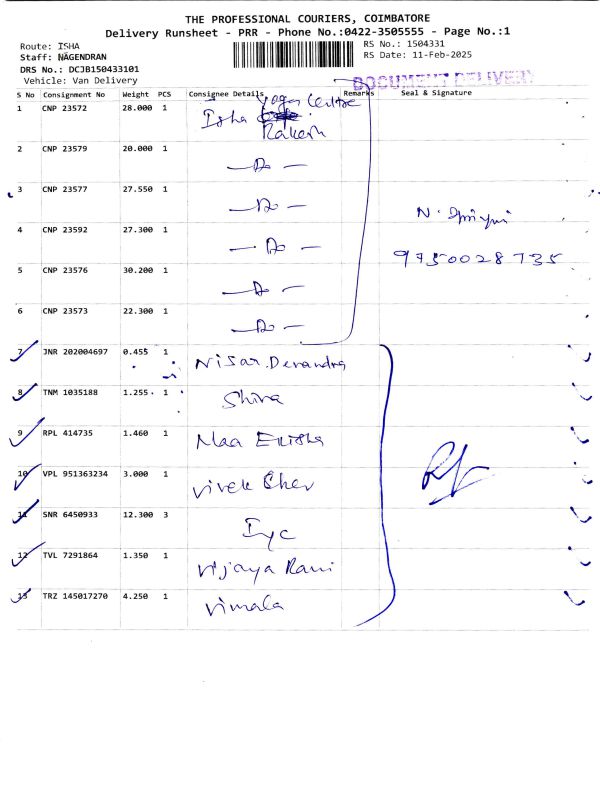 THE PROFESSIONAL COURIERS, COIMBATORE
Delivery Runsheet - PRR - Phone No.:0422-3505555 - Page No.:1
Route: ISHA
Staff: NAGENDRAN
DRS No.: DCJB150433101
Vehicle: Van Delivery
RS No.: 1504331
RS Date: 11-Feb-2025
DOCUMENT DELIVERY
S No Consignment No Weight PCS Consignee Details Remarks Seal & Signature
1 CNP 23572 28.000 1 Isha Yoga Centre
Rakesh
2 CNP 23579 20.000 1 — Do —
3 CNP 23577 27.550 1 — Do —
4 CNP 23592 27.300 1 — Do —
5 CNP 23576 30.200 1 — Do —
6 CNP 23573 22.300 1 — Do —
N.
9750028735
7 JNR 202004697 0.455 1 Nisar. Devandra
8 TNM 1035188 1.255 1 Shiva
9 RPL 414735 1.460 1 Maa
10 VPL 951363234 3.000 1 Vivek
11 SNR 6450933 12.300 3 Iyc
12 TVL 7291864 1.350 1 Vijaya Rani
13 TRZ 145017270 4.250 1 Vimala